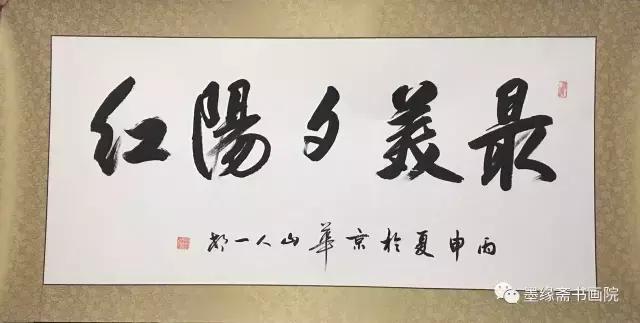 最美夕陽红
丙申夏於京華山人一
墨缘斋书画院